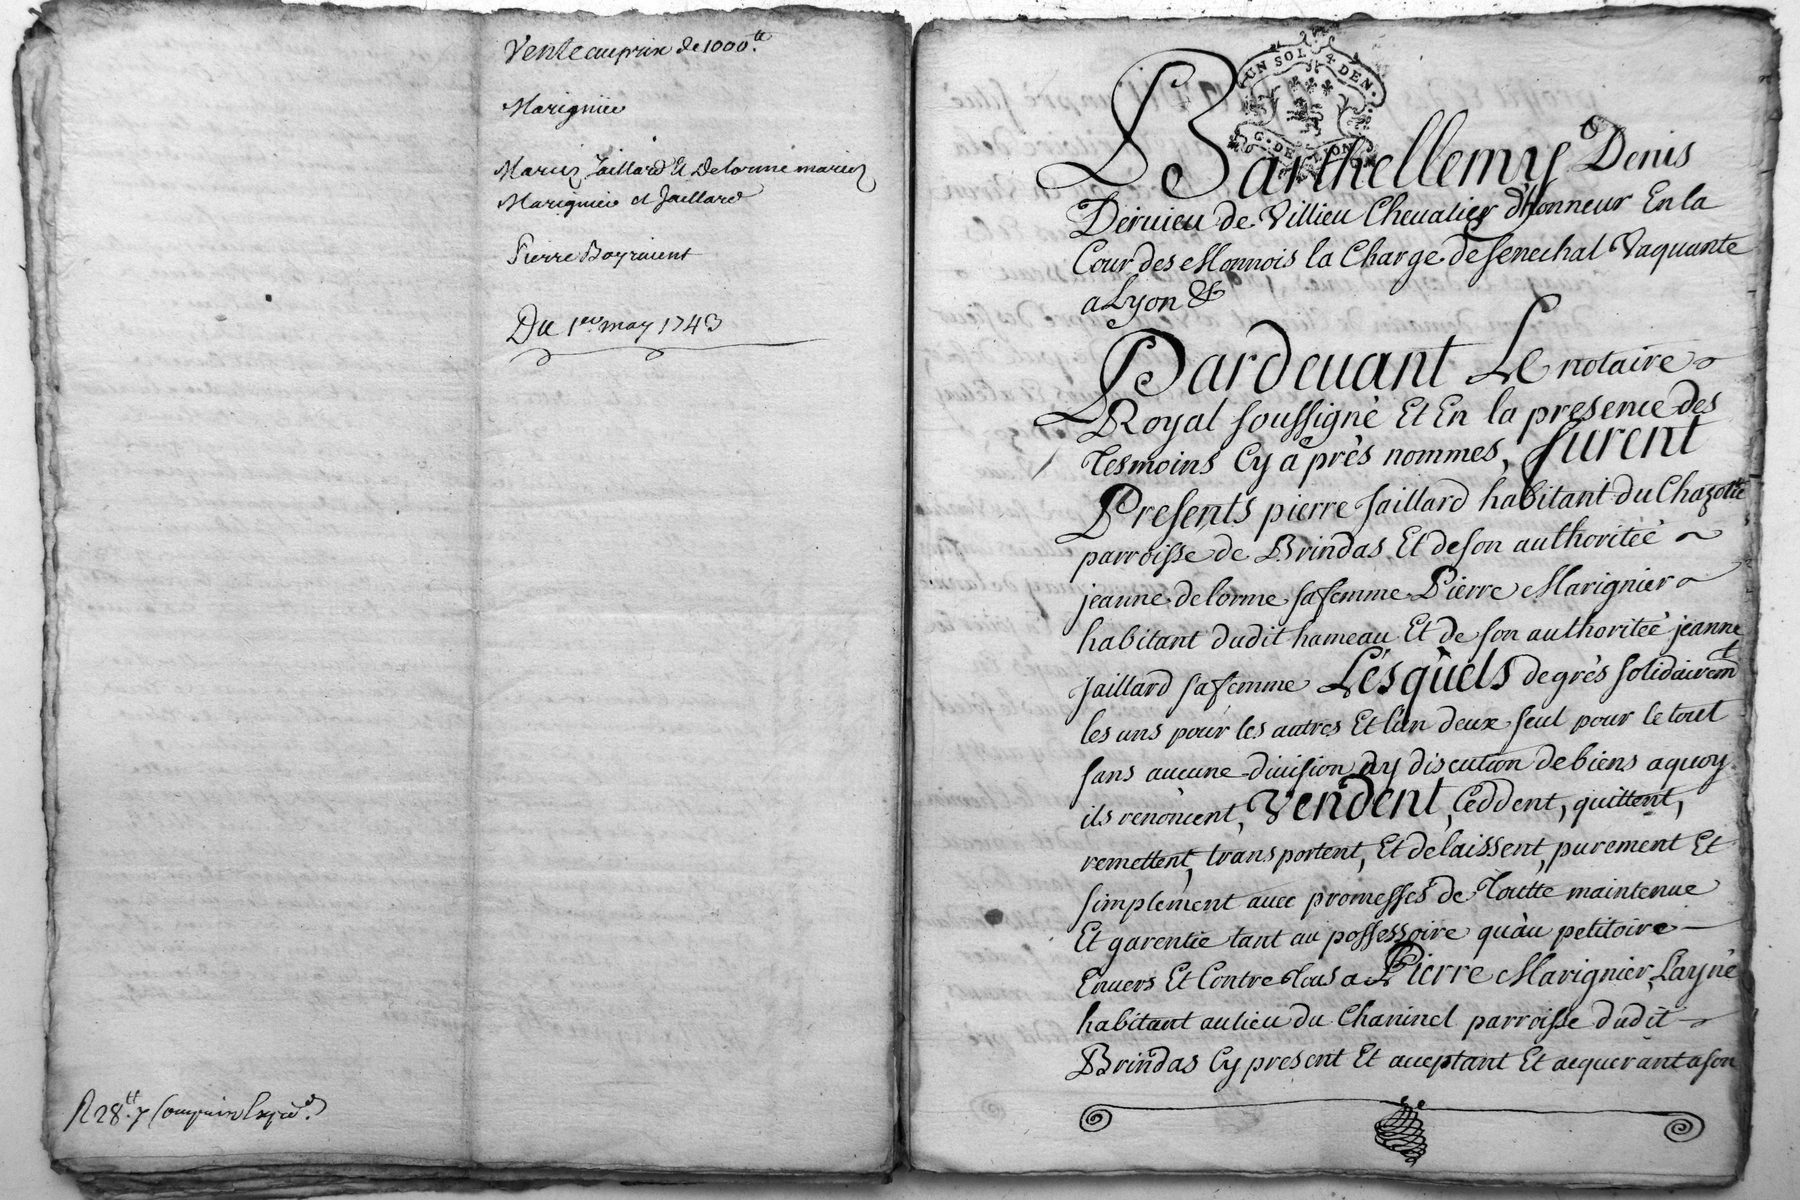 Vente au prix de 1000.tt
Marignier
Mariez Jaillard Et Delorme mariez
Marignier et Jaillard
Pierre
Du 1er may 1743
R 28.tt 7
UN SOL 4 DEN.
G. DE LYON
Barthellemy Denis
Dervieu de Villieu Chevalier d'honneur En la
Cour des Monnois la Charge de senechal Vaquante
a Lyon &
Pardevant Le notaire
Royal soussigné Et En la presence des
Tesmoins Cy après nommes, furent
Presents pierre Jaillard habitant du Chazotte
parroisse de Brindas Et de son authoriteé
jeanne delorme sa femme Pierre Marignier
habitant dudit hameau Et de son authoriteé jeanne
Jaillard sa femme Lesquels de grés solidairemt
les uns pour les autres Et l'un deux seul pour le tout
sans aucune division ny discution de biens a quoy
ils renoncent, Vendent, Ceddent, quittent,
remettent, transportent, Et delaissent, purement Et
simplement avec promesses de Toutte maintenue
Et garentie tant au possessoire qu'au petitoire
Envers Et Contre Tous a Pierre Marignier, Layné
habitant au lieu du Chaninel parroisse dudit
Brindas Cy present Et acceptant Et acquerant a son